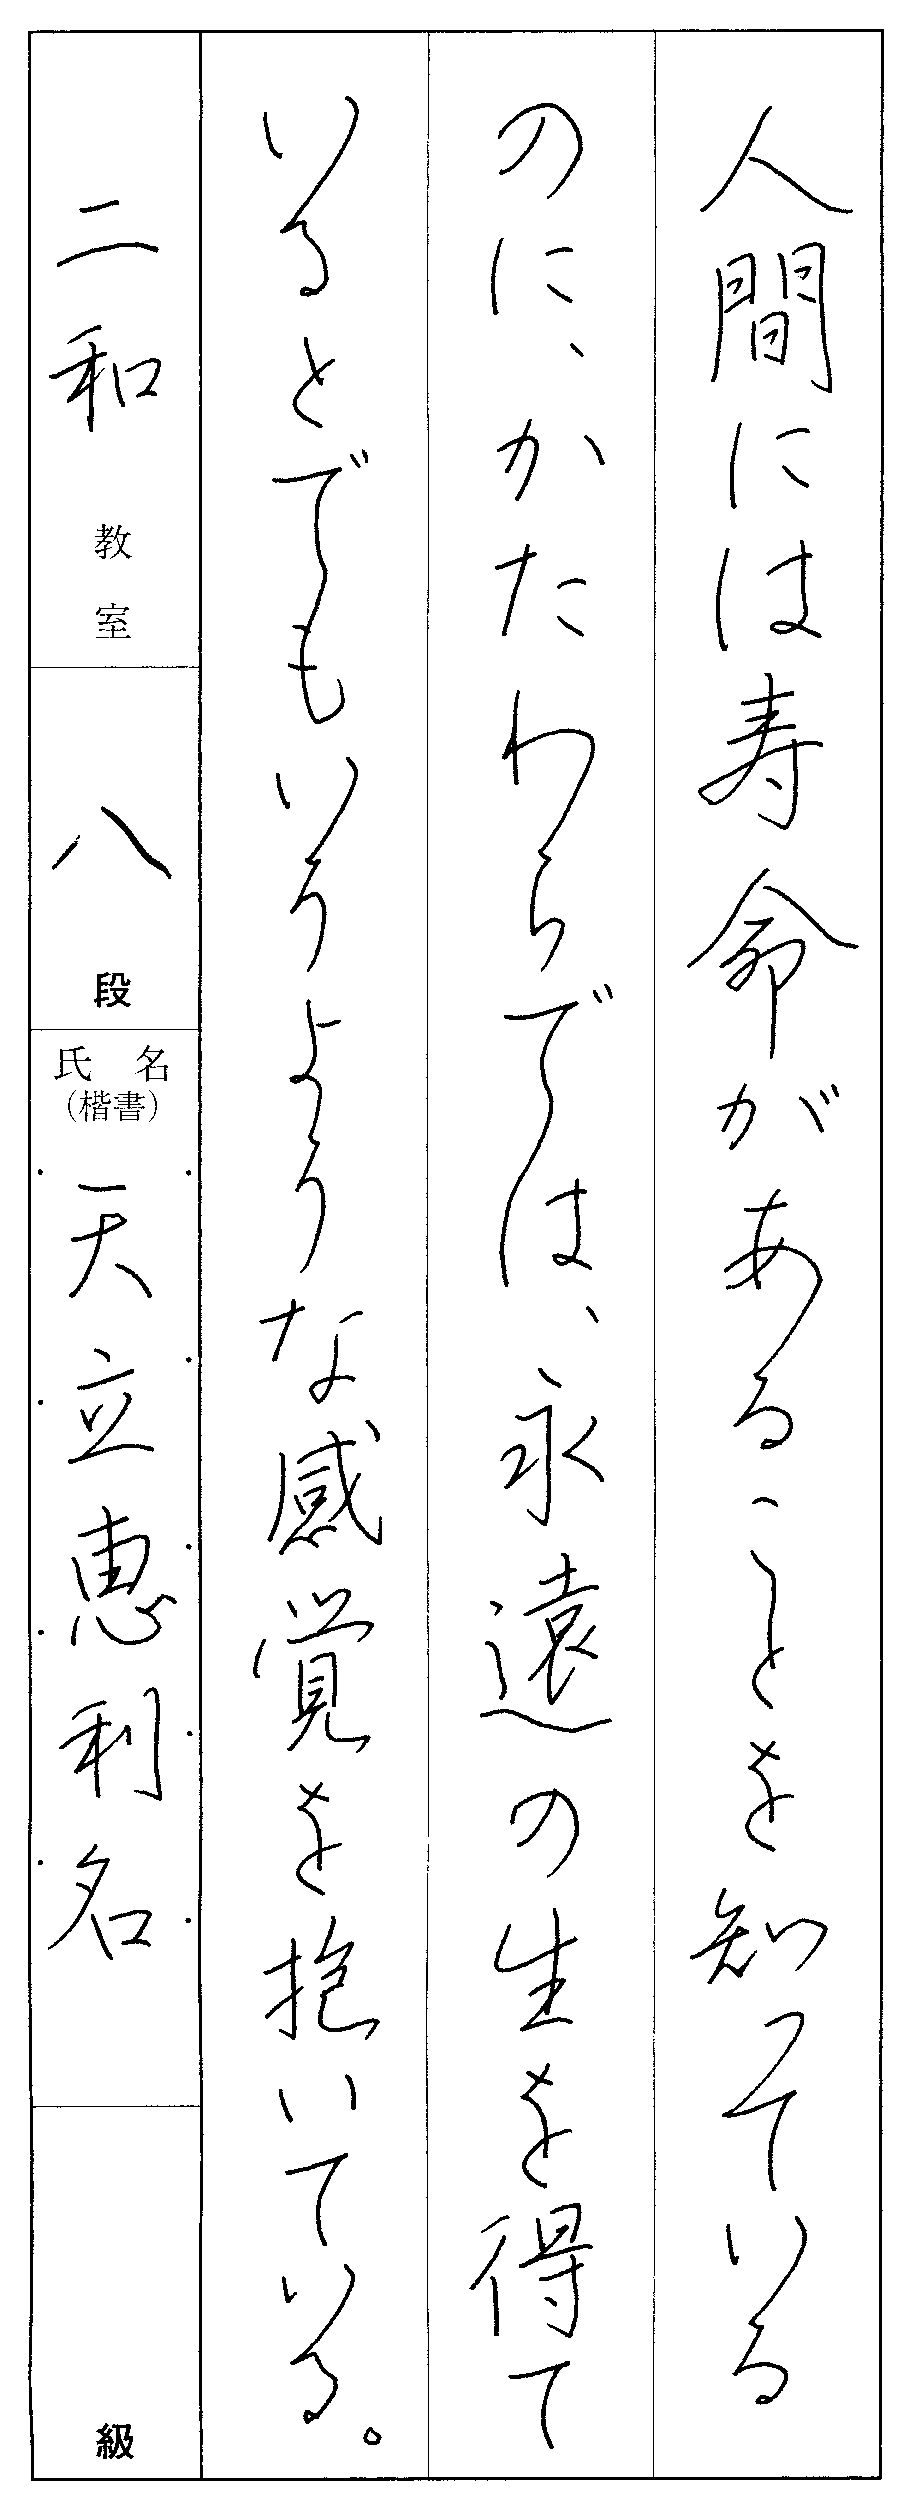 人間には寿命があることを知っている
のに、かたわらでは、永遠の生を得て
いるとでもいうような感覚を抱いている。
二和教室
八段
氏名
(楷書)
天立恵利名
級